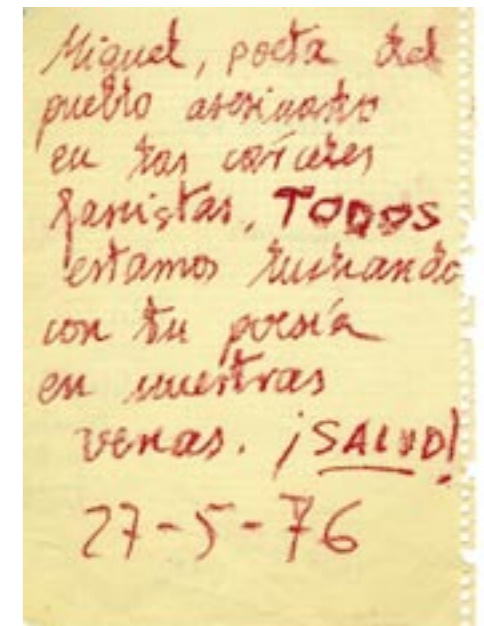 Miguel, poeta del
pueblo asesinado
en las cárceles
fascistas, TODOS
estamos luchando
con tu poesía
en nuestras
venas. ¡SALUD!
27-5-76